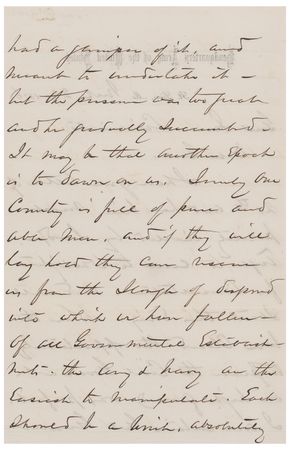 had a glimpse of it, and
meant to undertake it -
but the pressure was too great
and he gradually succumbed.
It may be that another Epoch
is to dawn on us. Surely our
Country is full of pure and
able men, and if they will
lay hold they can rescue
us from the Slough of despond
into which we have fallen -
Of all Governmental Establish-
ments - the Army & Navy are the
Easiest to manipulate. Each
should be a Unit, absolutely